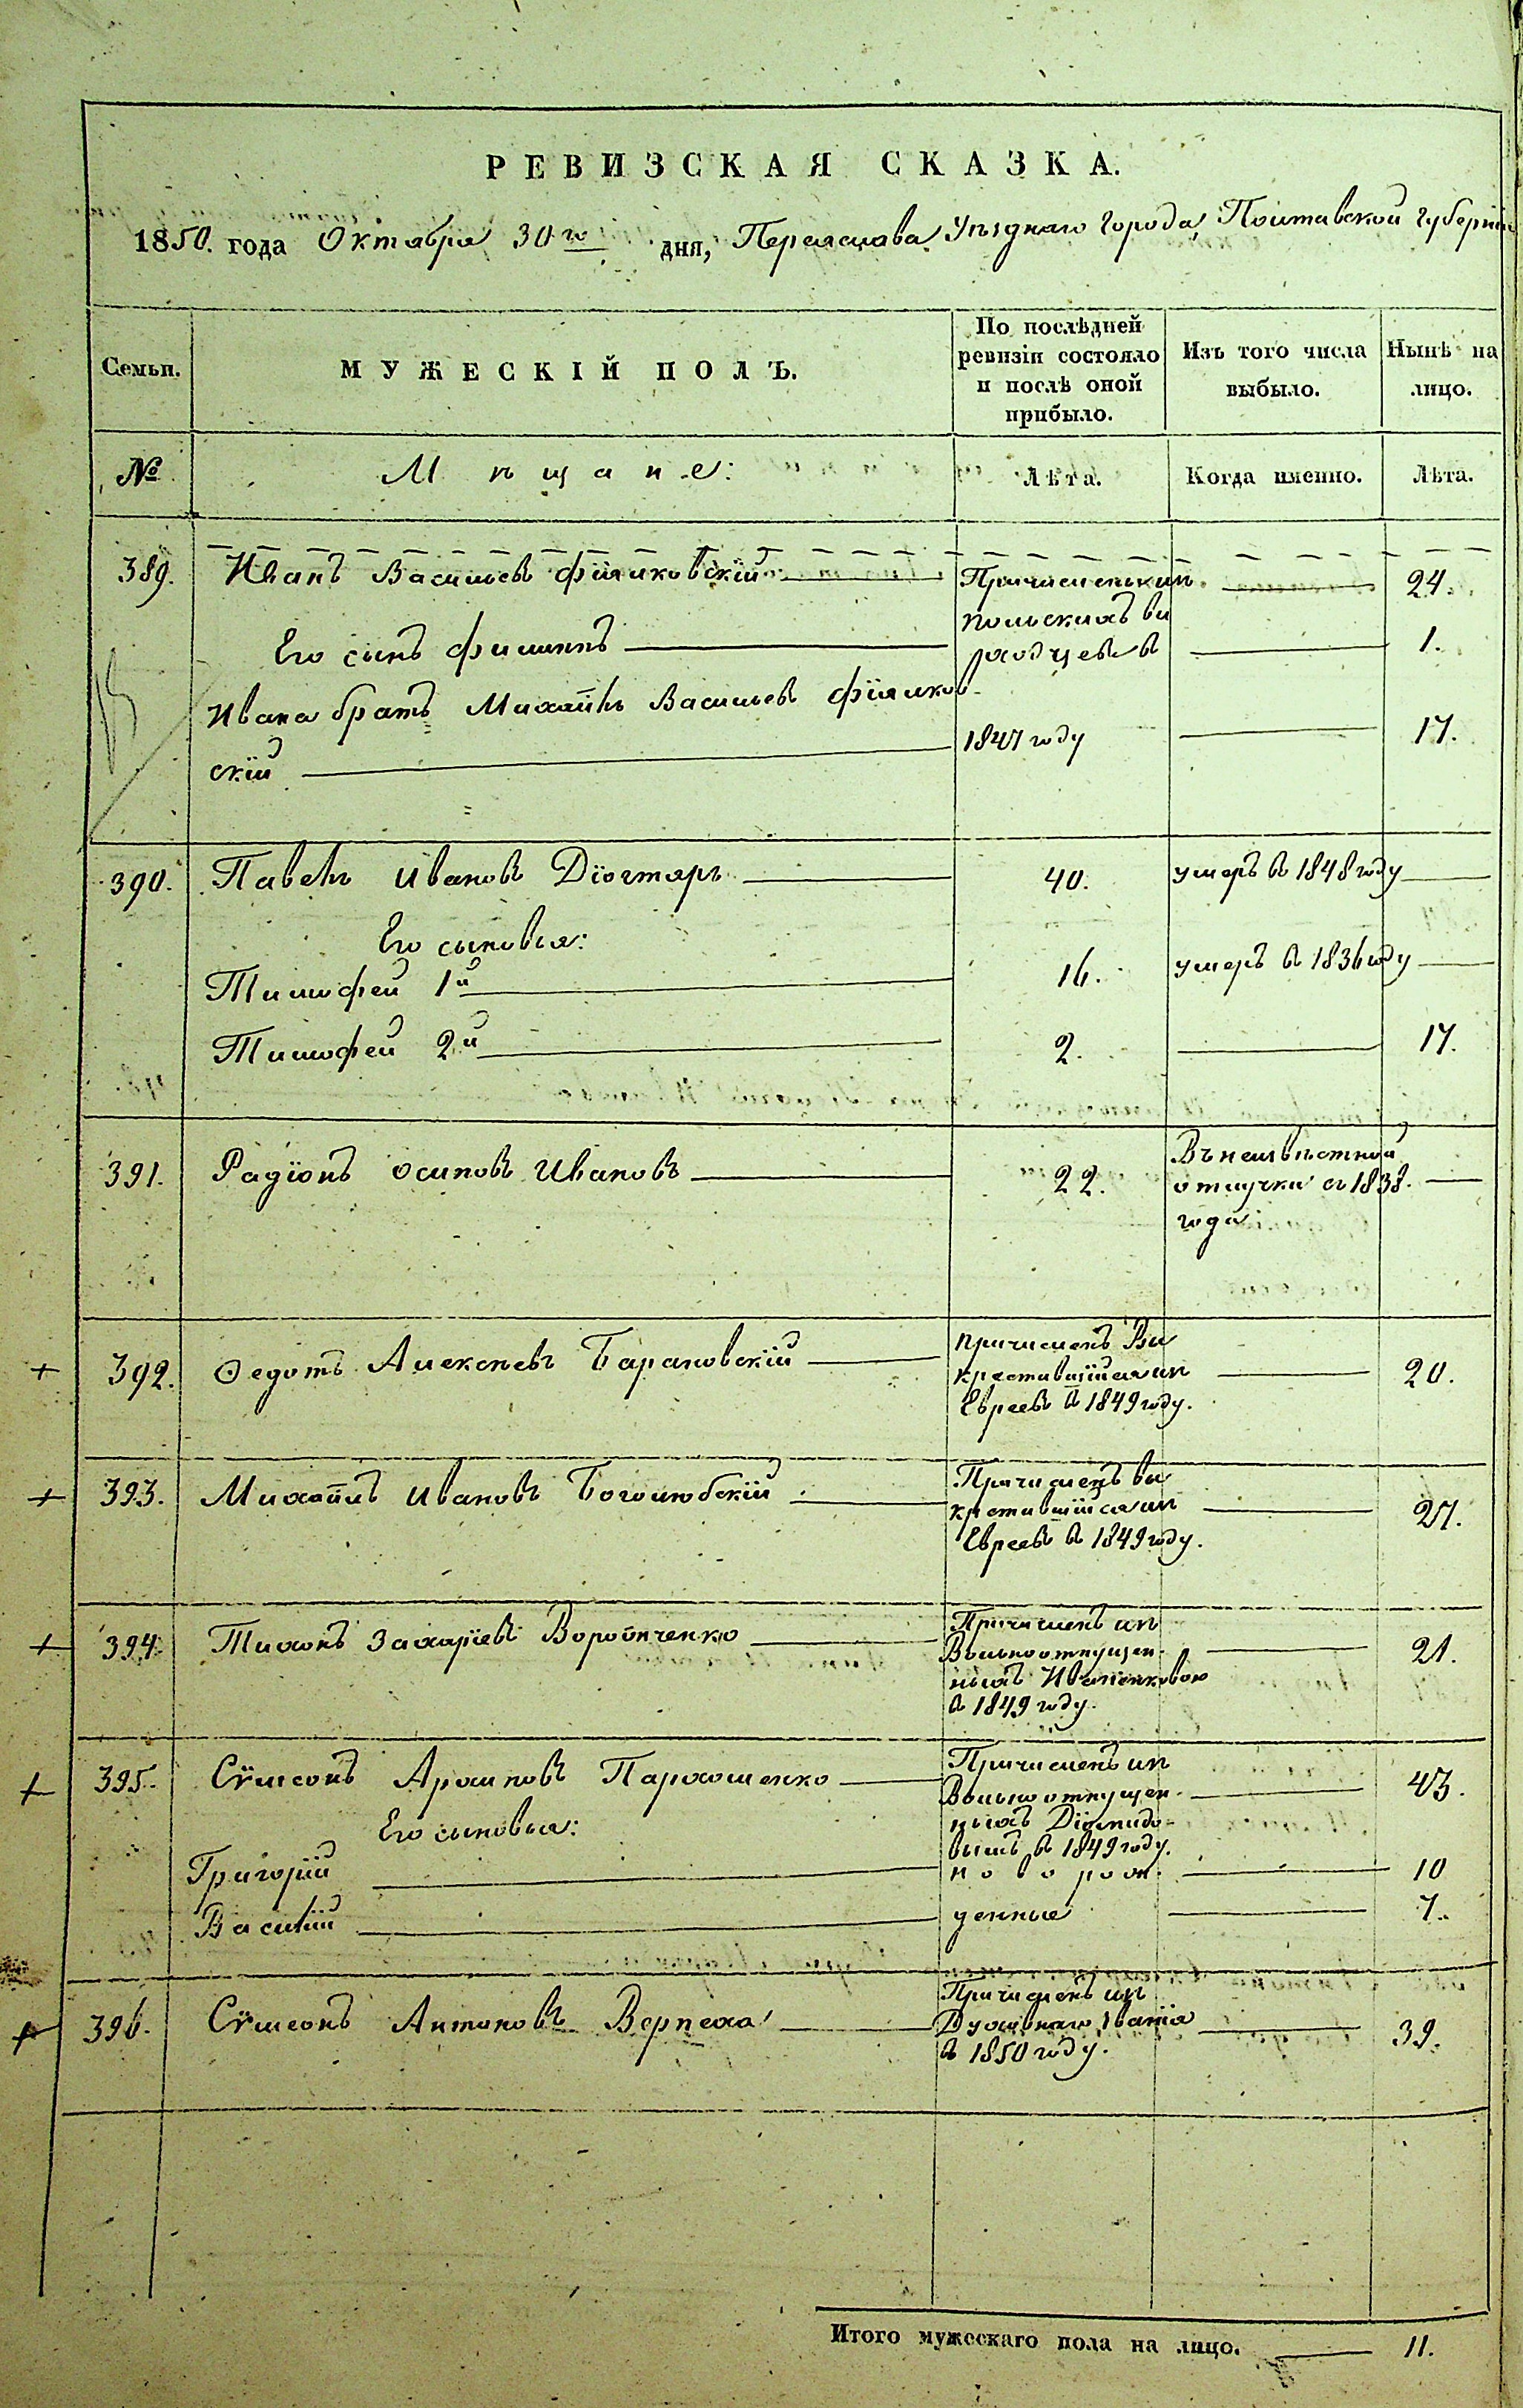 РЕВИЗСКАЯ СКАЗКА.
1850. года Октября 30го дня, Переяслава Уѣзднаго Города, Полтавской Губерніи
Семьи. МУЖЕСКІЙ ПОЛЪ. По послѣдней ревизіи состояло и послѣ оной прибыло. Изъ того числа выбыло. Нынѣ на лицо.
№ Мѣщане: Лѣта. Когда именно. Лѣта.
389. Иванъ Васильевъ 24.
польскихъ
Его сынъ Филиппъ 1.
Ивана братъ Михайлъ Васильевъ
скій 1847 году 17.
390. Павелъ Ивановъ Дiогтярь 40. умеръ въ 1848 году
Его сыновья:
Тимофей 1й 16. умеръ въ 1836 году
Тимофей 2й 2. 17.
391. Радіонъ Осиповъ Ивановъ 22. Въ неизвѣстной
отлучки съ 1838.
года
392. Ѳедотъ Алексѣевъ Барановскій Причисленъ Вы
крестившійся изъ 20.
Евреевъ въ 1849 году.
393. Михайлъ Ивановъ Боголюбскій Причисленъ вы
крстившійся изъ 27.
Евреевъ въ 1849 году.
394. Тихонъ Захаріевъ Воробиченко Причисленъ изъ
Вольноотпущен- 21.
ныхъ Иваненковою
въ 1849 году.
395. Сѵмеонъ Архиповъ Пархоменко Причисленъ изъ
Вольноотпущен- 43.
Его сыновья: ныхъ
въ 1849 году.
Григорій новорож- 10
Василій денные 7.
396. Сѵмеонъ Антоновъ Верпеха Причисленъ изъ
Духовнаго званія 39.
въ 1850 году.
Итого мужескаго пола на лицо. 11.